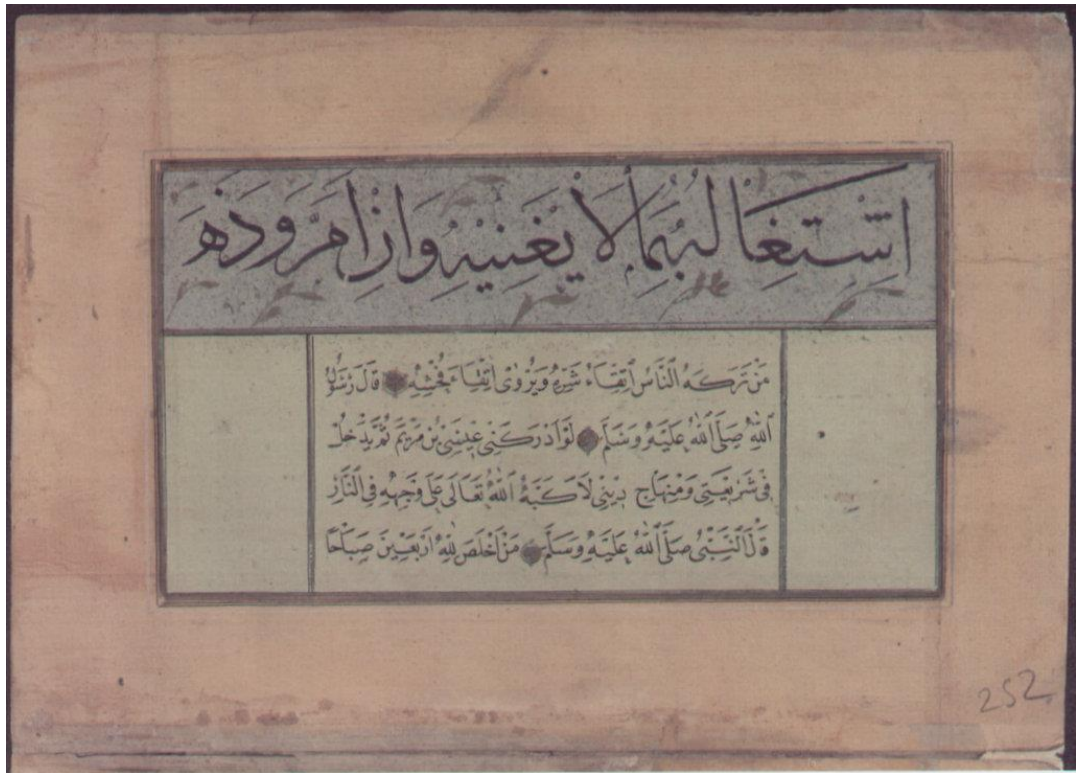 اشتغاله بما لا يعنيه وان امرو ذه
من تركه الناس اتقاء شره ويروى اتقاء فحشه قال رسول
الله صلى الله عليه وسلم لو ادركنى عيسى بن مريم ثم لم يدخل
فى شريعتى ومنهاج دينى لاكبه الله تعالى على وجهه فى النار
قال النبى صلى الله عليه وسلم من اخلص لله اربعين صباحا
252